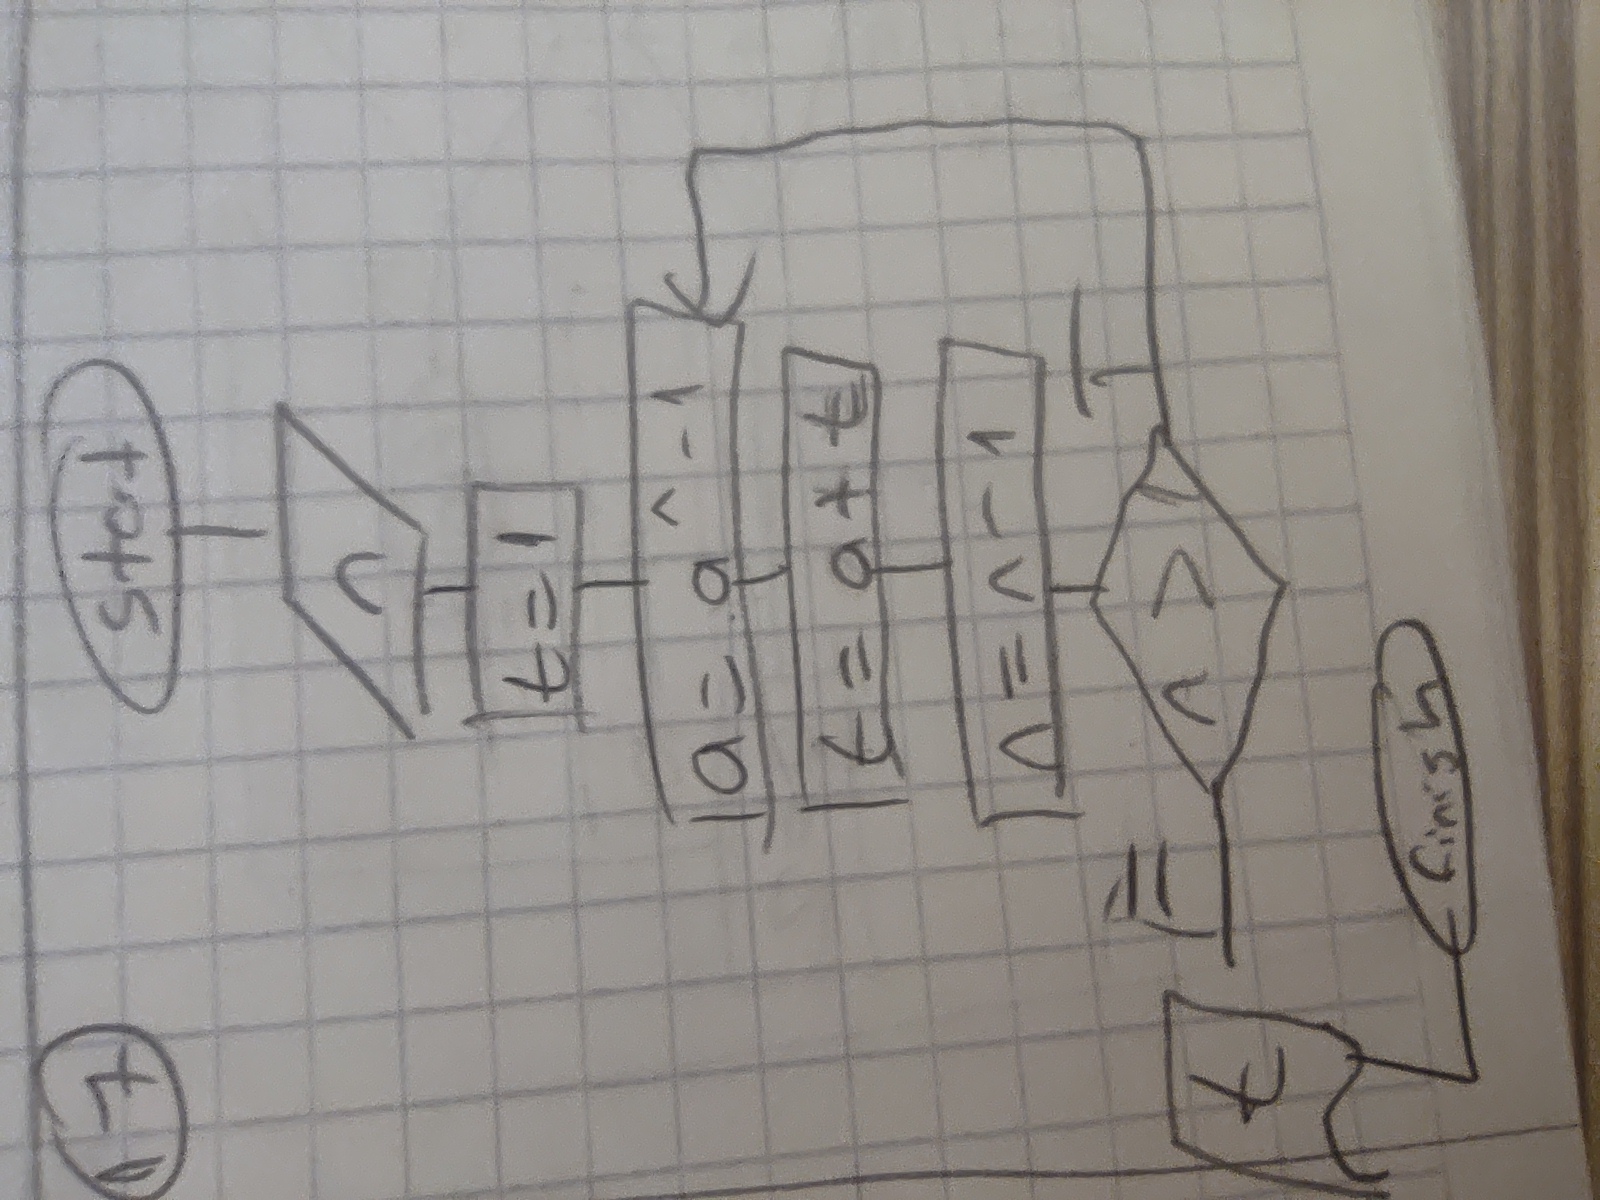 17
start
n
t = 1
a = a^n-1
t = a + t
n = n - 1
n > 1
T
F
t
finish